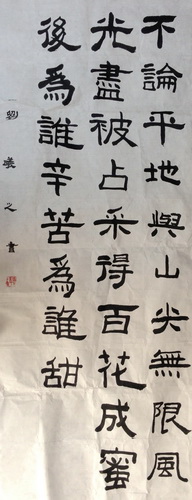 不論平地與山尖無限風
光盡被占采得百花成蜜
後為誰辛苦為誰甜
劉 之書